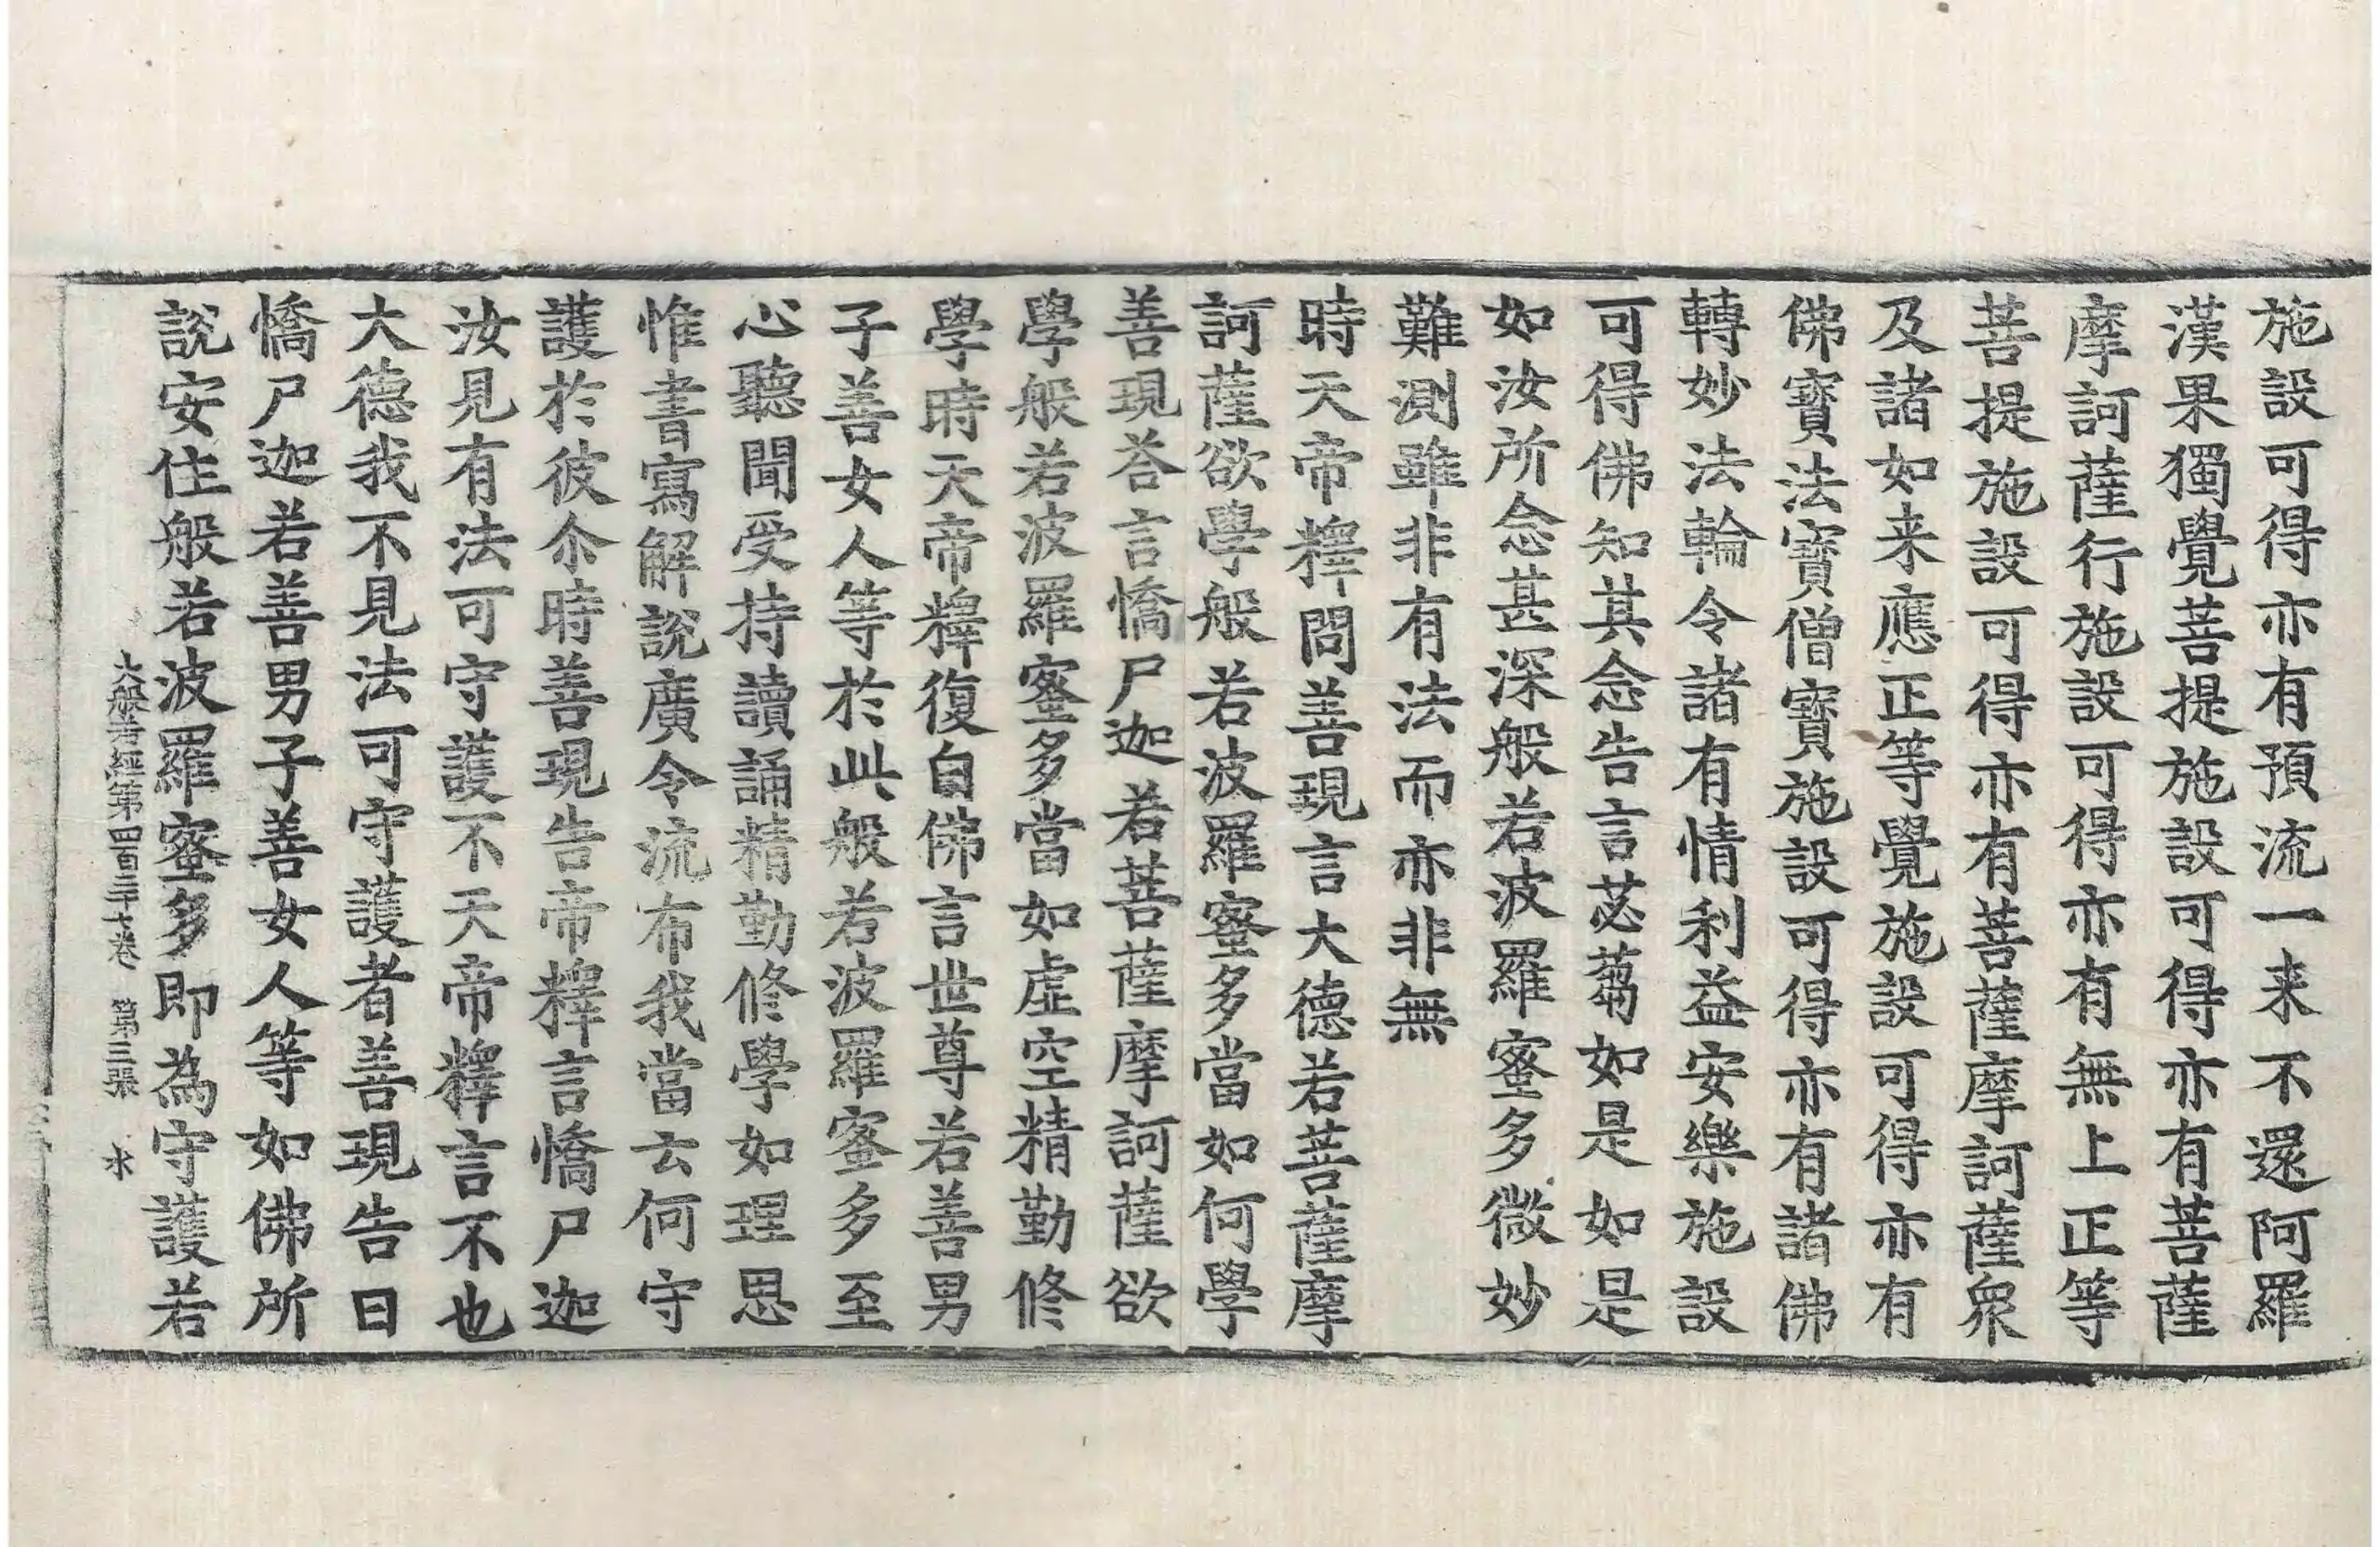 施設可得亦有預流一来不還阿羅
漢果獨覺菩提施設可得亦有菩薩
摩訶薩行施設可得亦有無上正等
菩提施設可得亦有菩薩摩訶薩衆
及諸如来應正等覺施設可得亦有
佛寶法寶僧寶施設可得亦有諸佛
轉妙法輪令諸有情利益安樂施設
可得佛知其念告言苾蒭如是如是
如汝所念甚深般若波羅蜜多微妙
難測雖非有法而亦非無
時天帝釋問善現言大德若菩薩摩
訶薩欲學般若波羅蜜多當如何學
善現荅言憍尸迦若菩薩摩訶薩欲
學般若波羅蜜多當如虛空精勤修
學時天帝釋復白佛言世尊若善男
子善女人等於此般若波羅蜜多至
心聽聞受持讀誦精勤修學如理思
惟書寫解說廣令流布我當云何守
護於彼尒時善現告帝釋言憍尸迦
汝見有法可守護不天帝釋言不也
大德我不見法可守護者善現告曰
憍尸迦若善男子善女人等如佛所
說安住般若波羅蜜多即為守護若
大般若經第四百二十七卷 第三張 水